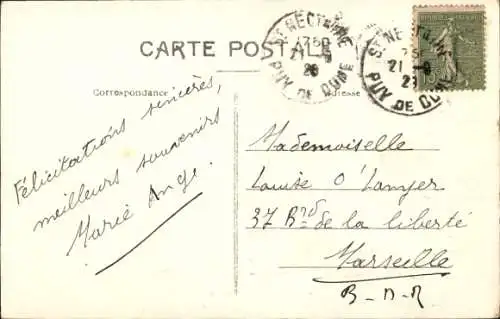 CARTE POSTALE
Correspondance
Adresse
ST NECTAIRE
17 50
21 - 9
28
PUY DE DOME
ST NECTAIRE
21 - 9
PUY DE DOME
Félicitations sincères,
meilleurs souvenirs
Marie Ange.
Mademoiselle
Louise O'Lanyer
37 Brd de la liberté
Marseille
B - D - R